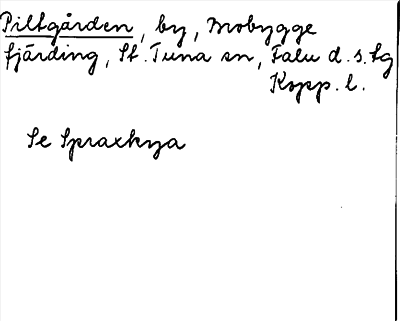 Piltgården, by, Mobygge
fjärding, St. Tuna sn, Falu d. s. tg
Kopp. l.
Se Spraxkya